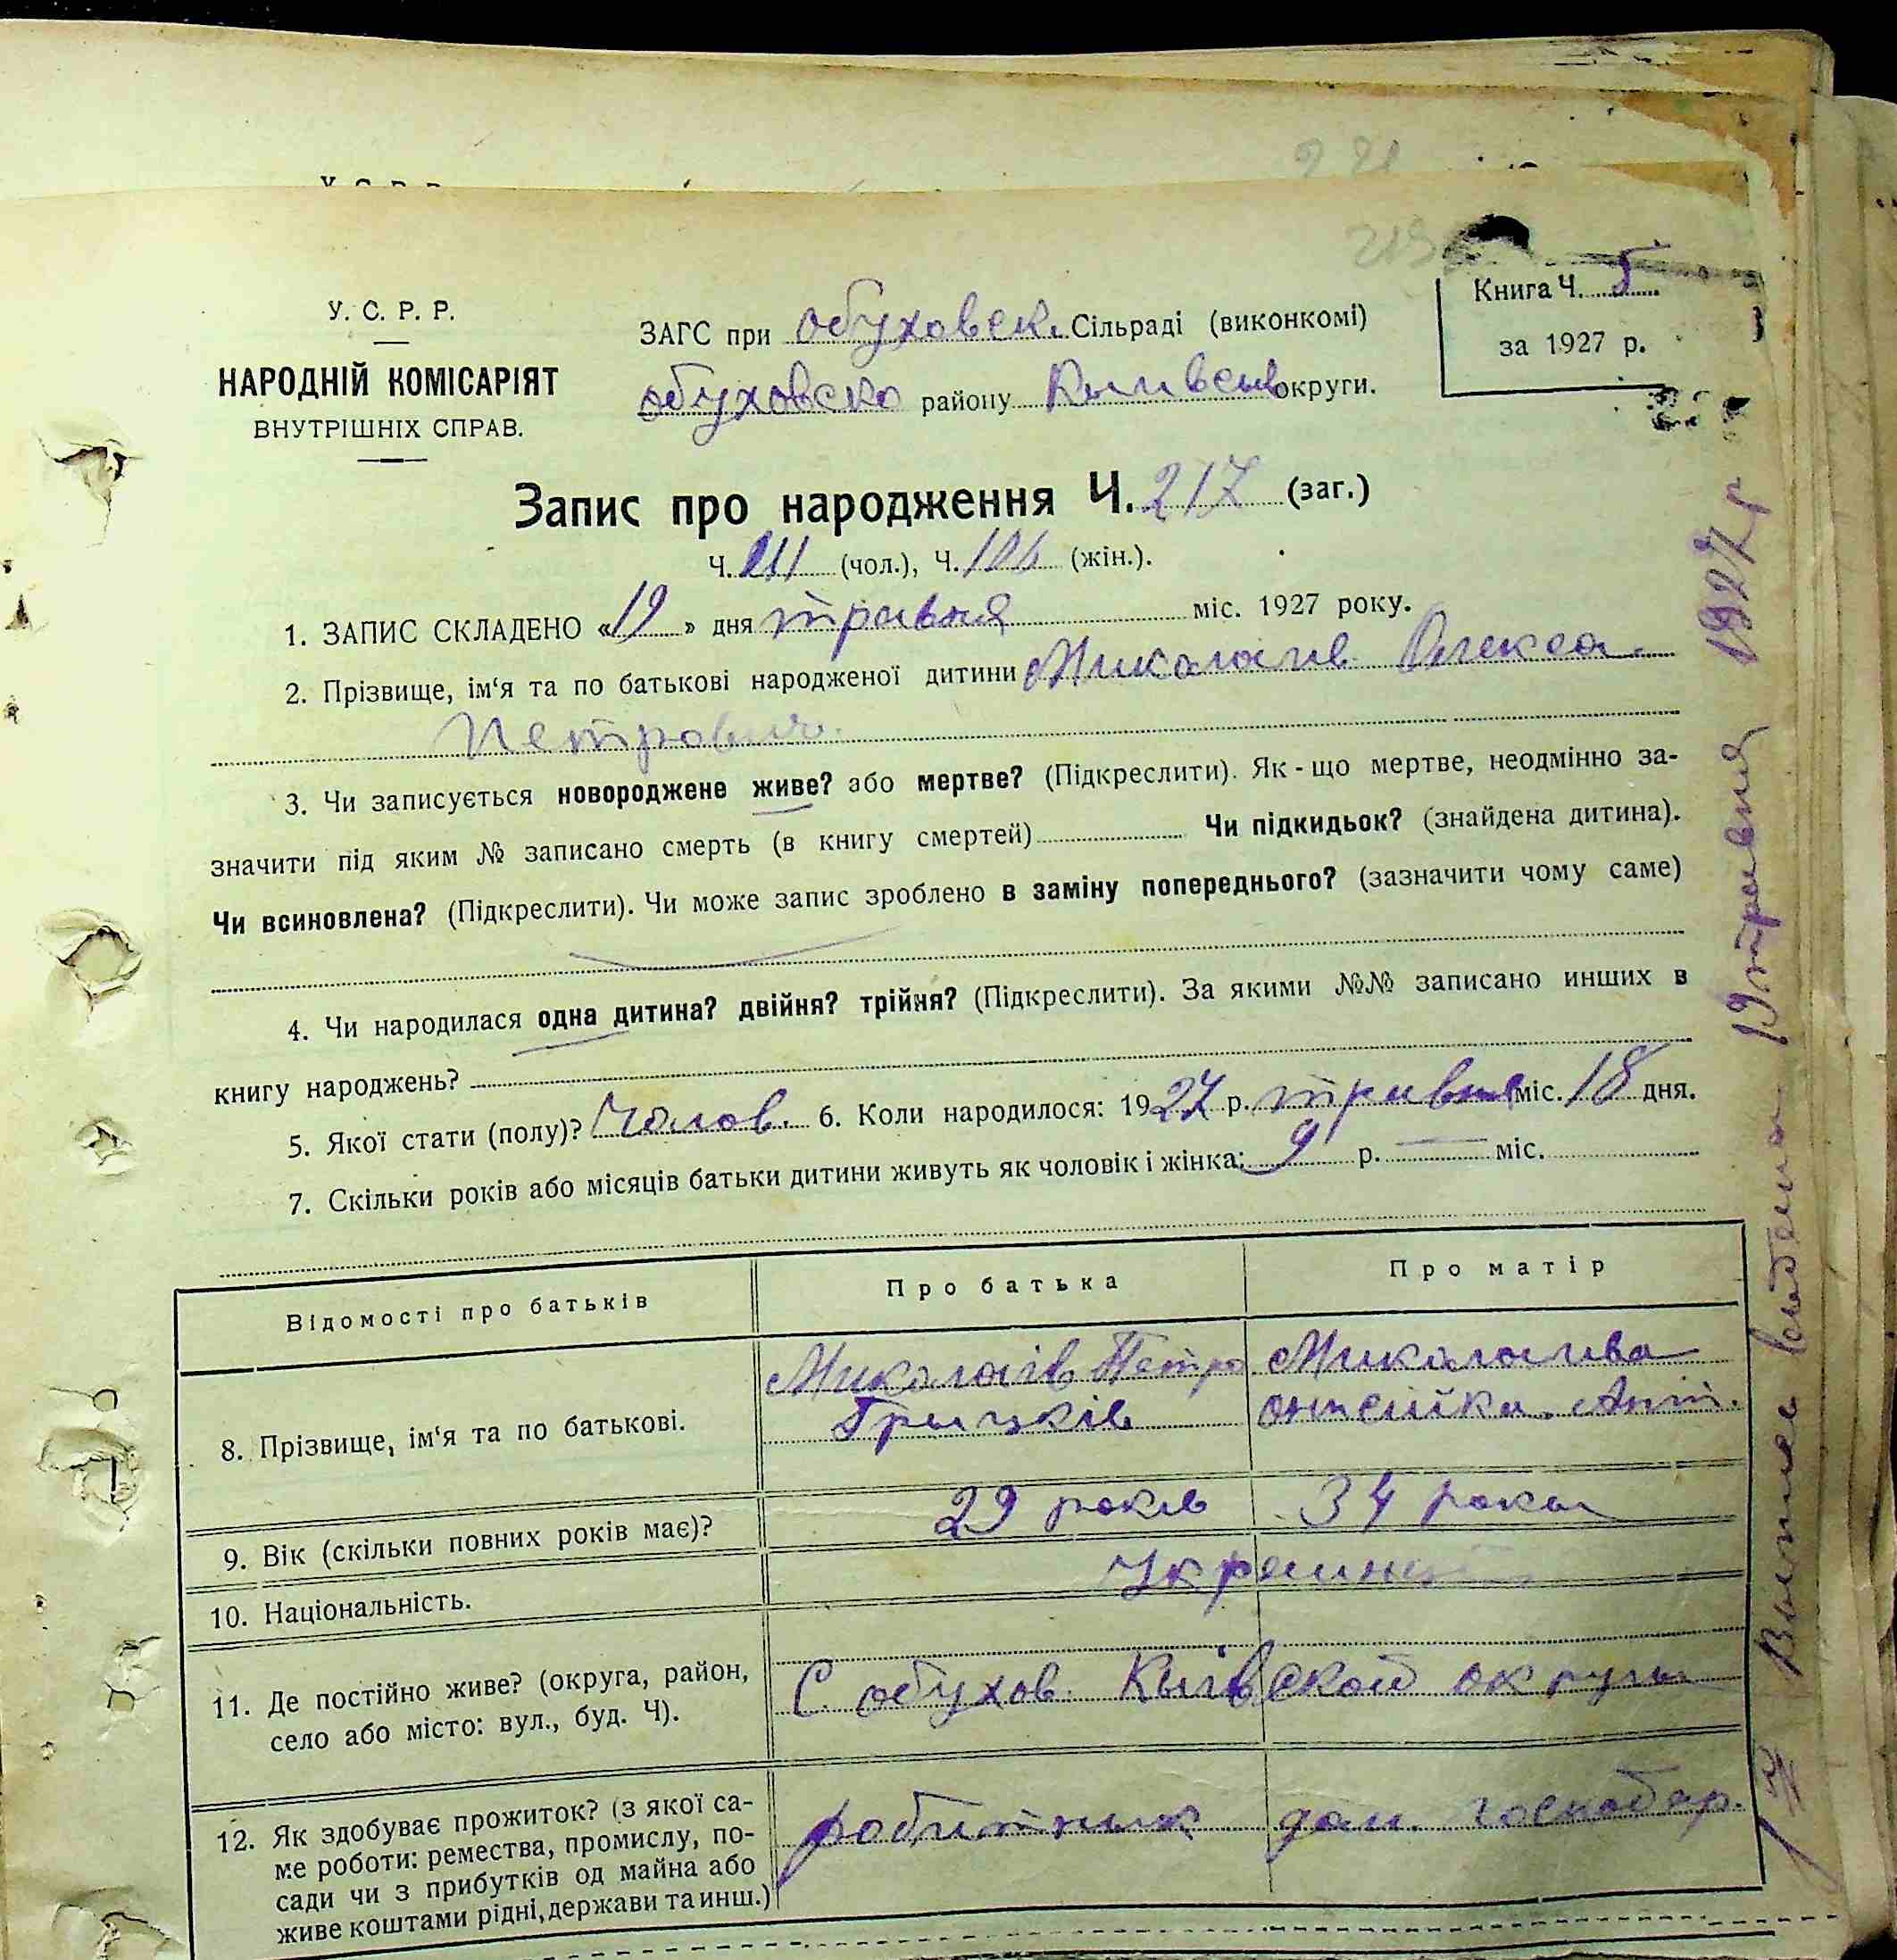 221
219
У. С. Р. Р.
НАРОДНІЙ КОМІСАРІЯТ
ВНУТРІШНІХ СПРАВ.
ЗАГС при обуховск. Сільраді (виконкомі)
обуховско району округи.
Книга Ч. 5
за 1927 р.
Запис про народження Ч. 217 (заг.)
Ч. 111 (чол.), Ч. 106 (жін.).
1. ЗАПИС СКЛАДЕНО «19» дня травня міс. 1927 року.
2. Прізвище, ім‘я та по батькові народженої дитини Миколаїв Олекса
Петрович.
3. Чи записується новороджене живе? або мертве? (Підкреслити). Як-що мертве, неодмінно за-
значити під яким № записано смерть (в книгу смертей) Чи підкидьок? (знайдена дитина).
Чи всиновлена? (Підкреслити). Чи може запис зроблено в заміну попереднього? (зазначити чому саме)
4. Чи народилася одна дитина? двійня? трійня? (Підкреслити). За якими №№ записано инших в
книгу народжень?
5. Якої стати (полу)? Чолов. 6. Коли народилося: 1927 р. травня міс. 18 дня.
7. Скільки років або місяців батьки дитини живуть як чоловік і жінка: 9 р. — міс.
Відомості про батьків
Про батька
Про матір
8. Прізвище, ім‘я та по батькові.
Миколаїв Петро
Грицків
Миколаива
Ант.
9. Вік (скільки повних років має)?
29 років
34 рока
10. Національність.
11. Де постійно живе? (округа, район,
село або місто: вул., буд. Ч).
С. обухов. Київской округи
12. Як здобуває прожиток? (з якої са-
ме роботи: ремества, промислу, по-
сади чи з прибутків од майна або
живе коштами рідні, держави та инш.)
робитник
дом. господар.
19 травня 1927 р